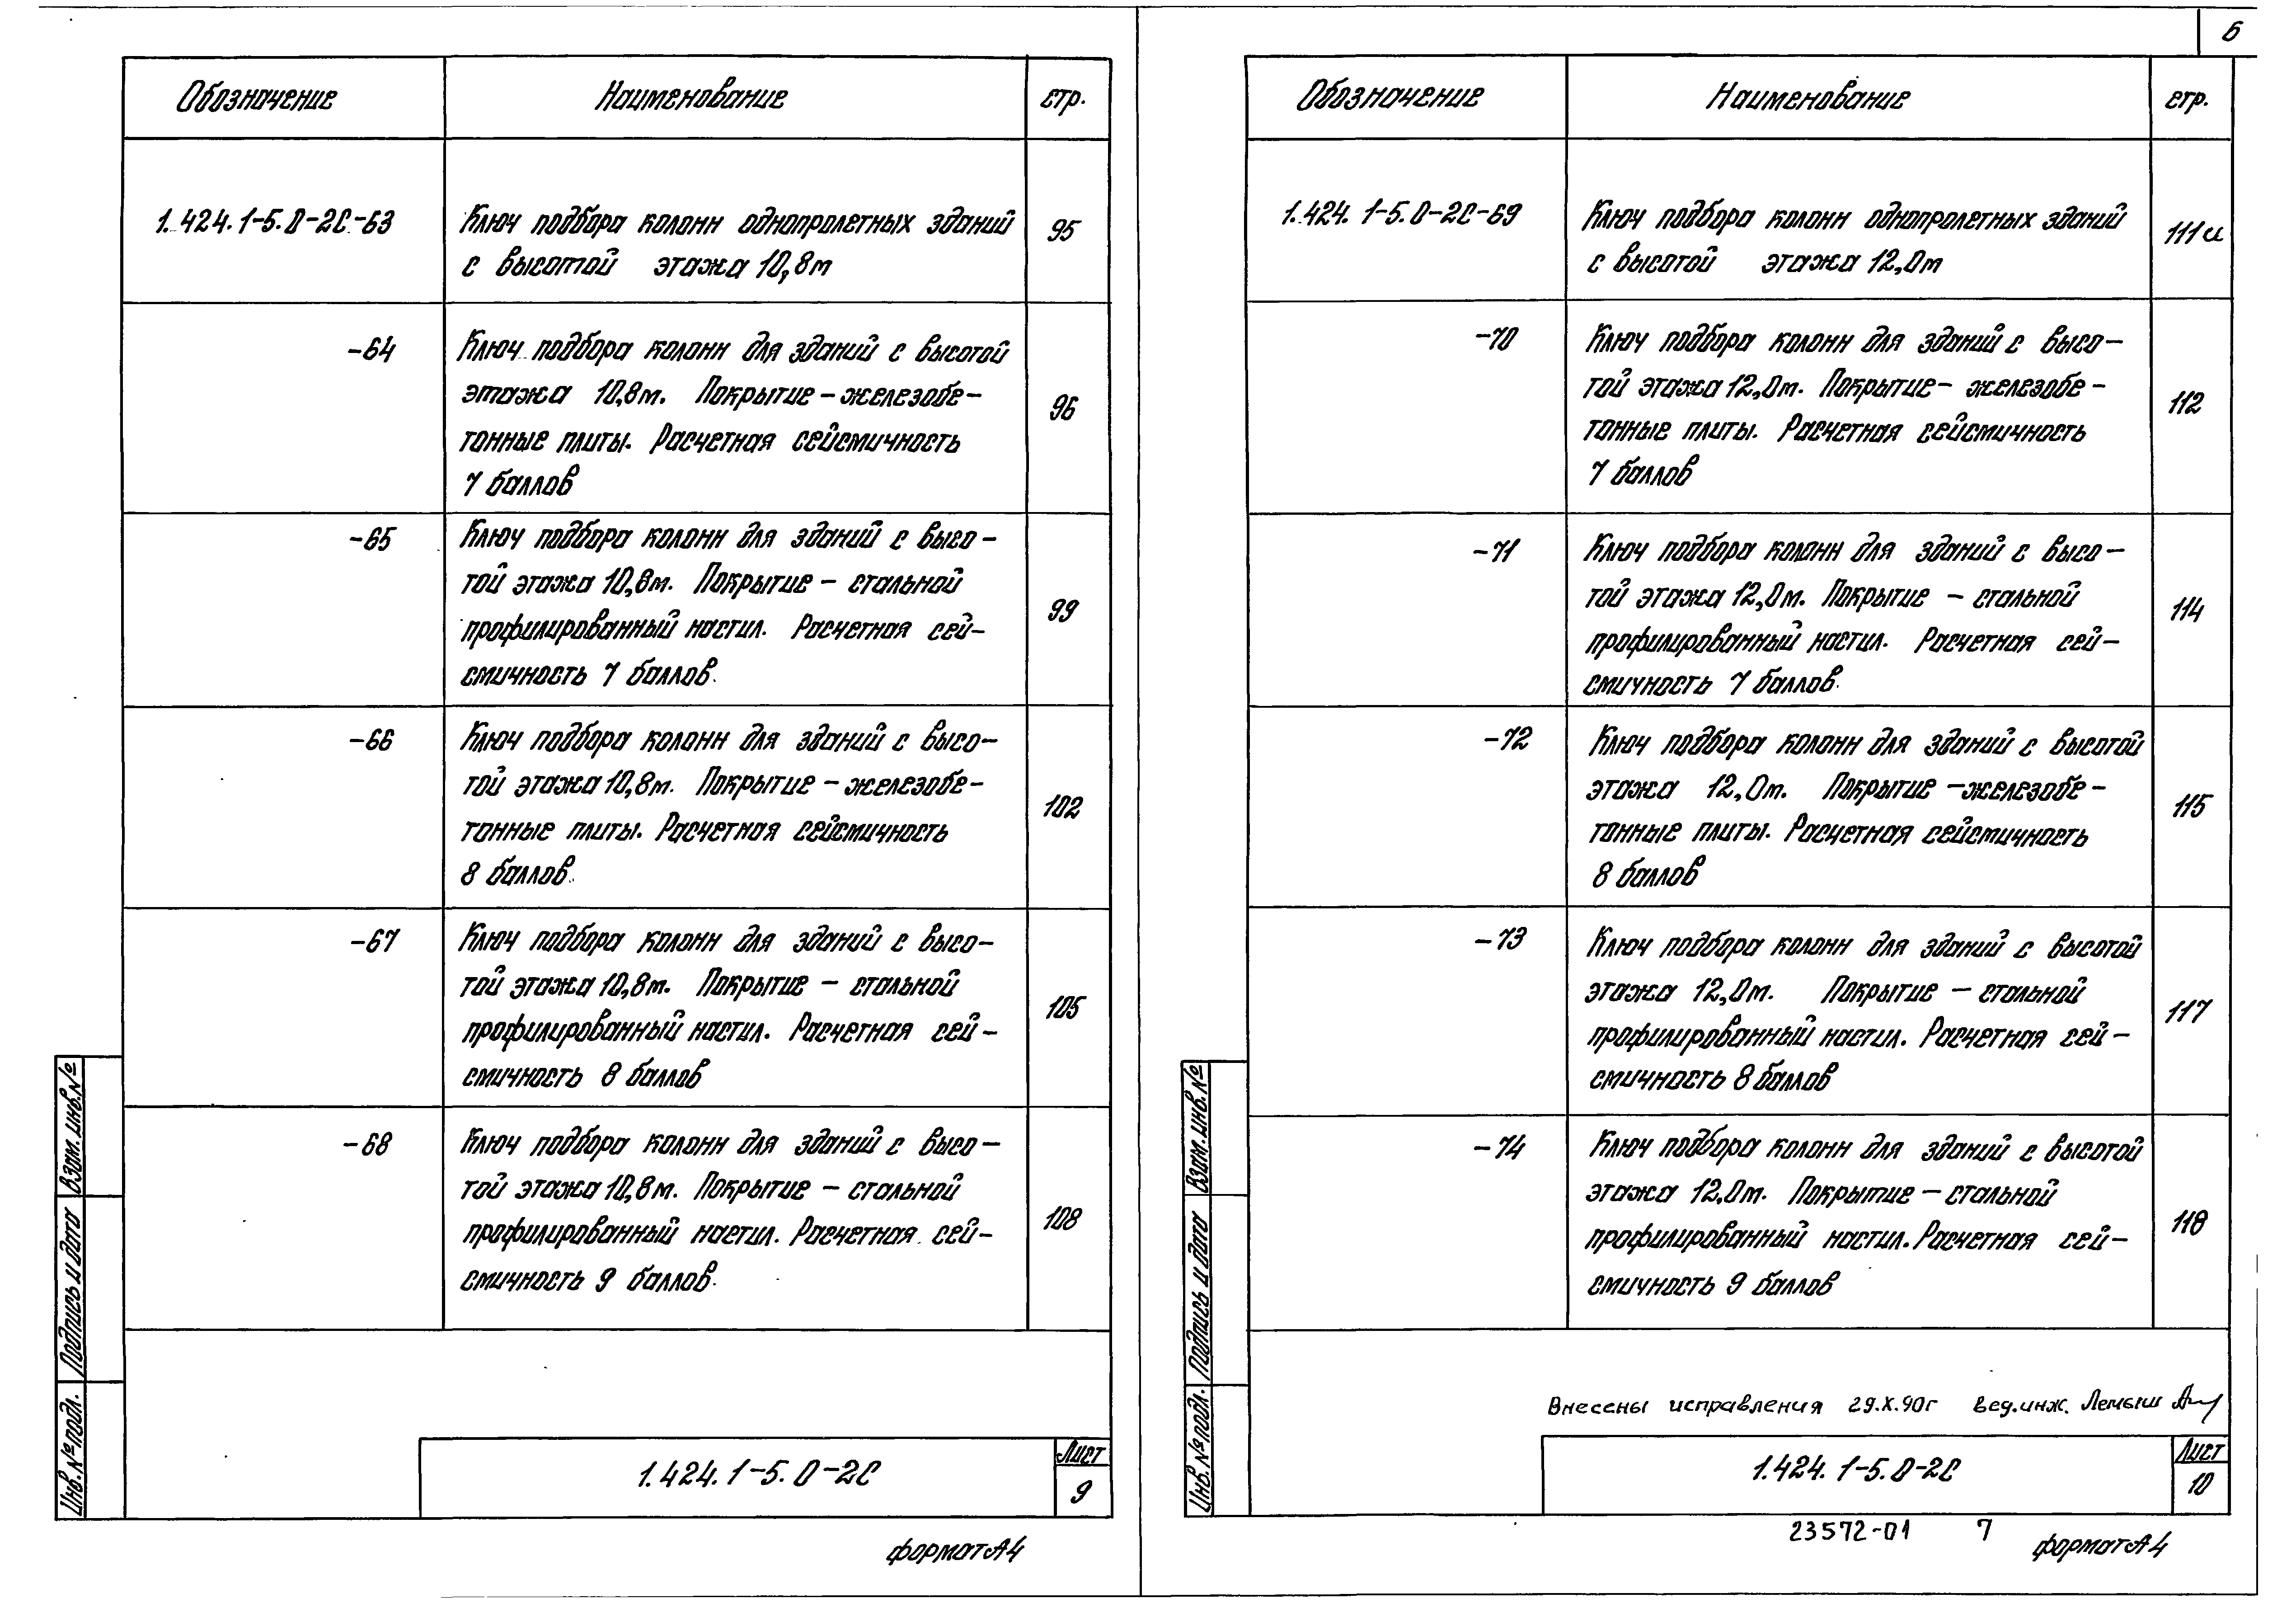 6
Обозначение
Наименование
стр.
1.424.1-5.0-2С-63
Ключ подбора колонн однопролетных зданий
с высотой этажа 10,8м
95
-64
Ключ подбора колонн для зданий с высотой
этажа 10,8м. Покрытие - железобе-
тонные плиты. Расчетная сейсмичность
7 баллов
96
-65
Ключ подбора колонн для зданий с высо-
той этажа 10,8м. Покрытие - стальной
профилированный настил. Расчетная сей-
смичность 7 баллов.
99
-66
Ключ подбора колонн для зданий с высо-
той этажа 10,8м. Покрытие - железобе-
тонные плиты. Расчетная сейсмичность
8 баллов.
102
-67
Ключ подбора колонн для зданий с высо-
той этажа 10,8м. Покрытие - стальной
профилированный настил. Расчетная сей-
смичность 8 баллов
105
-68
Ключ подбора колонн для зданий с высо-
той этажа 10,8м. Покрытие - стальной
профилированный настил. Расчетная сей-
смичность 9 баллов.
108
Взам. инв.№
Подпись и дата
Инв.№ подл.
1.424.1-5.0-2С
Лист
9
формат А4
Обозначение
Наименование
стр.
1.424.1-5.0-2С-69
Ключ подбора колонн однопролетных зданий
с высотой этажа 12,0м
111и
-70
Ключ подбора колонн для зданий с высо-
той этажа 12,0м. Покрытие - железобе-
тонные плиты. Расчетная сейсмичность
7 баллов
112
-71
Ключ подбора колонн для зданий с высо-
той этажа 12,0м. Покрытие - стальной
профилированный настил. Расчетная сей-
смичность 7 баллов.
114
-72
Ключ подбора колонн для зданий с высотой
этажа 12,0м. Покрытие - железобе-
тонные плиты. Расчетная сейсмичность
8 баллов
115
-73
Ключ подбора колонн для зданий с высотой
этажа 12,0м. Покрытие - стальной
профилированный настил. Расчетная сей-
смичность 8 баллов
117
-74
Ключ подбора колонн для зданий с высотой
этажа 12,0м. Покрытие - стальной
профилированный настил. Расчетная сей-
смичность 9 баллов
118
Внесены исправления 29.X.90г вед.инж. Лемыш
Взам. инв.№
Подпись и дата
Инв.№ подл.
1.424.1-5.0-2С
Лист
10
23572-01 7
формат А4